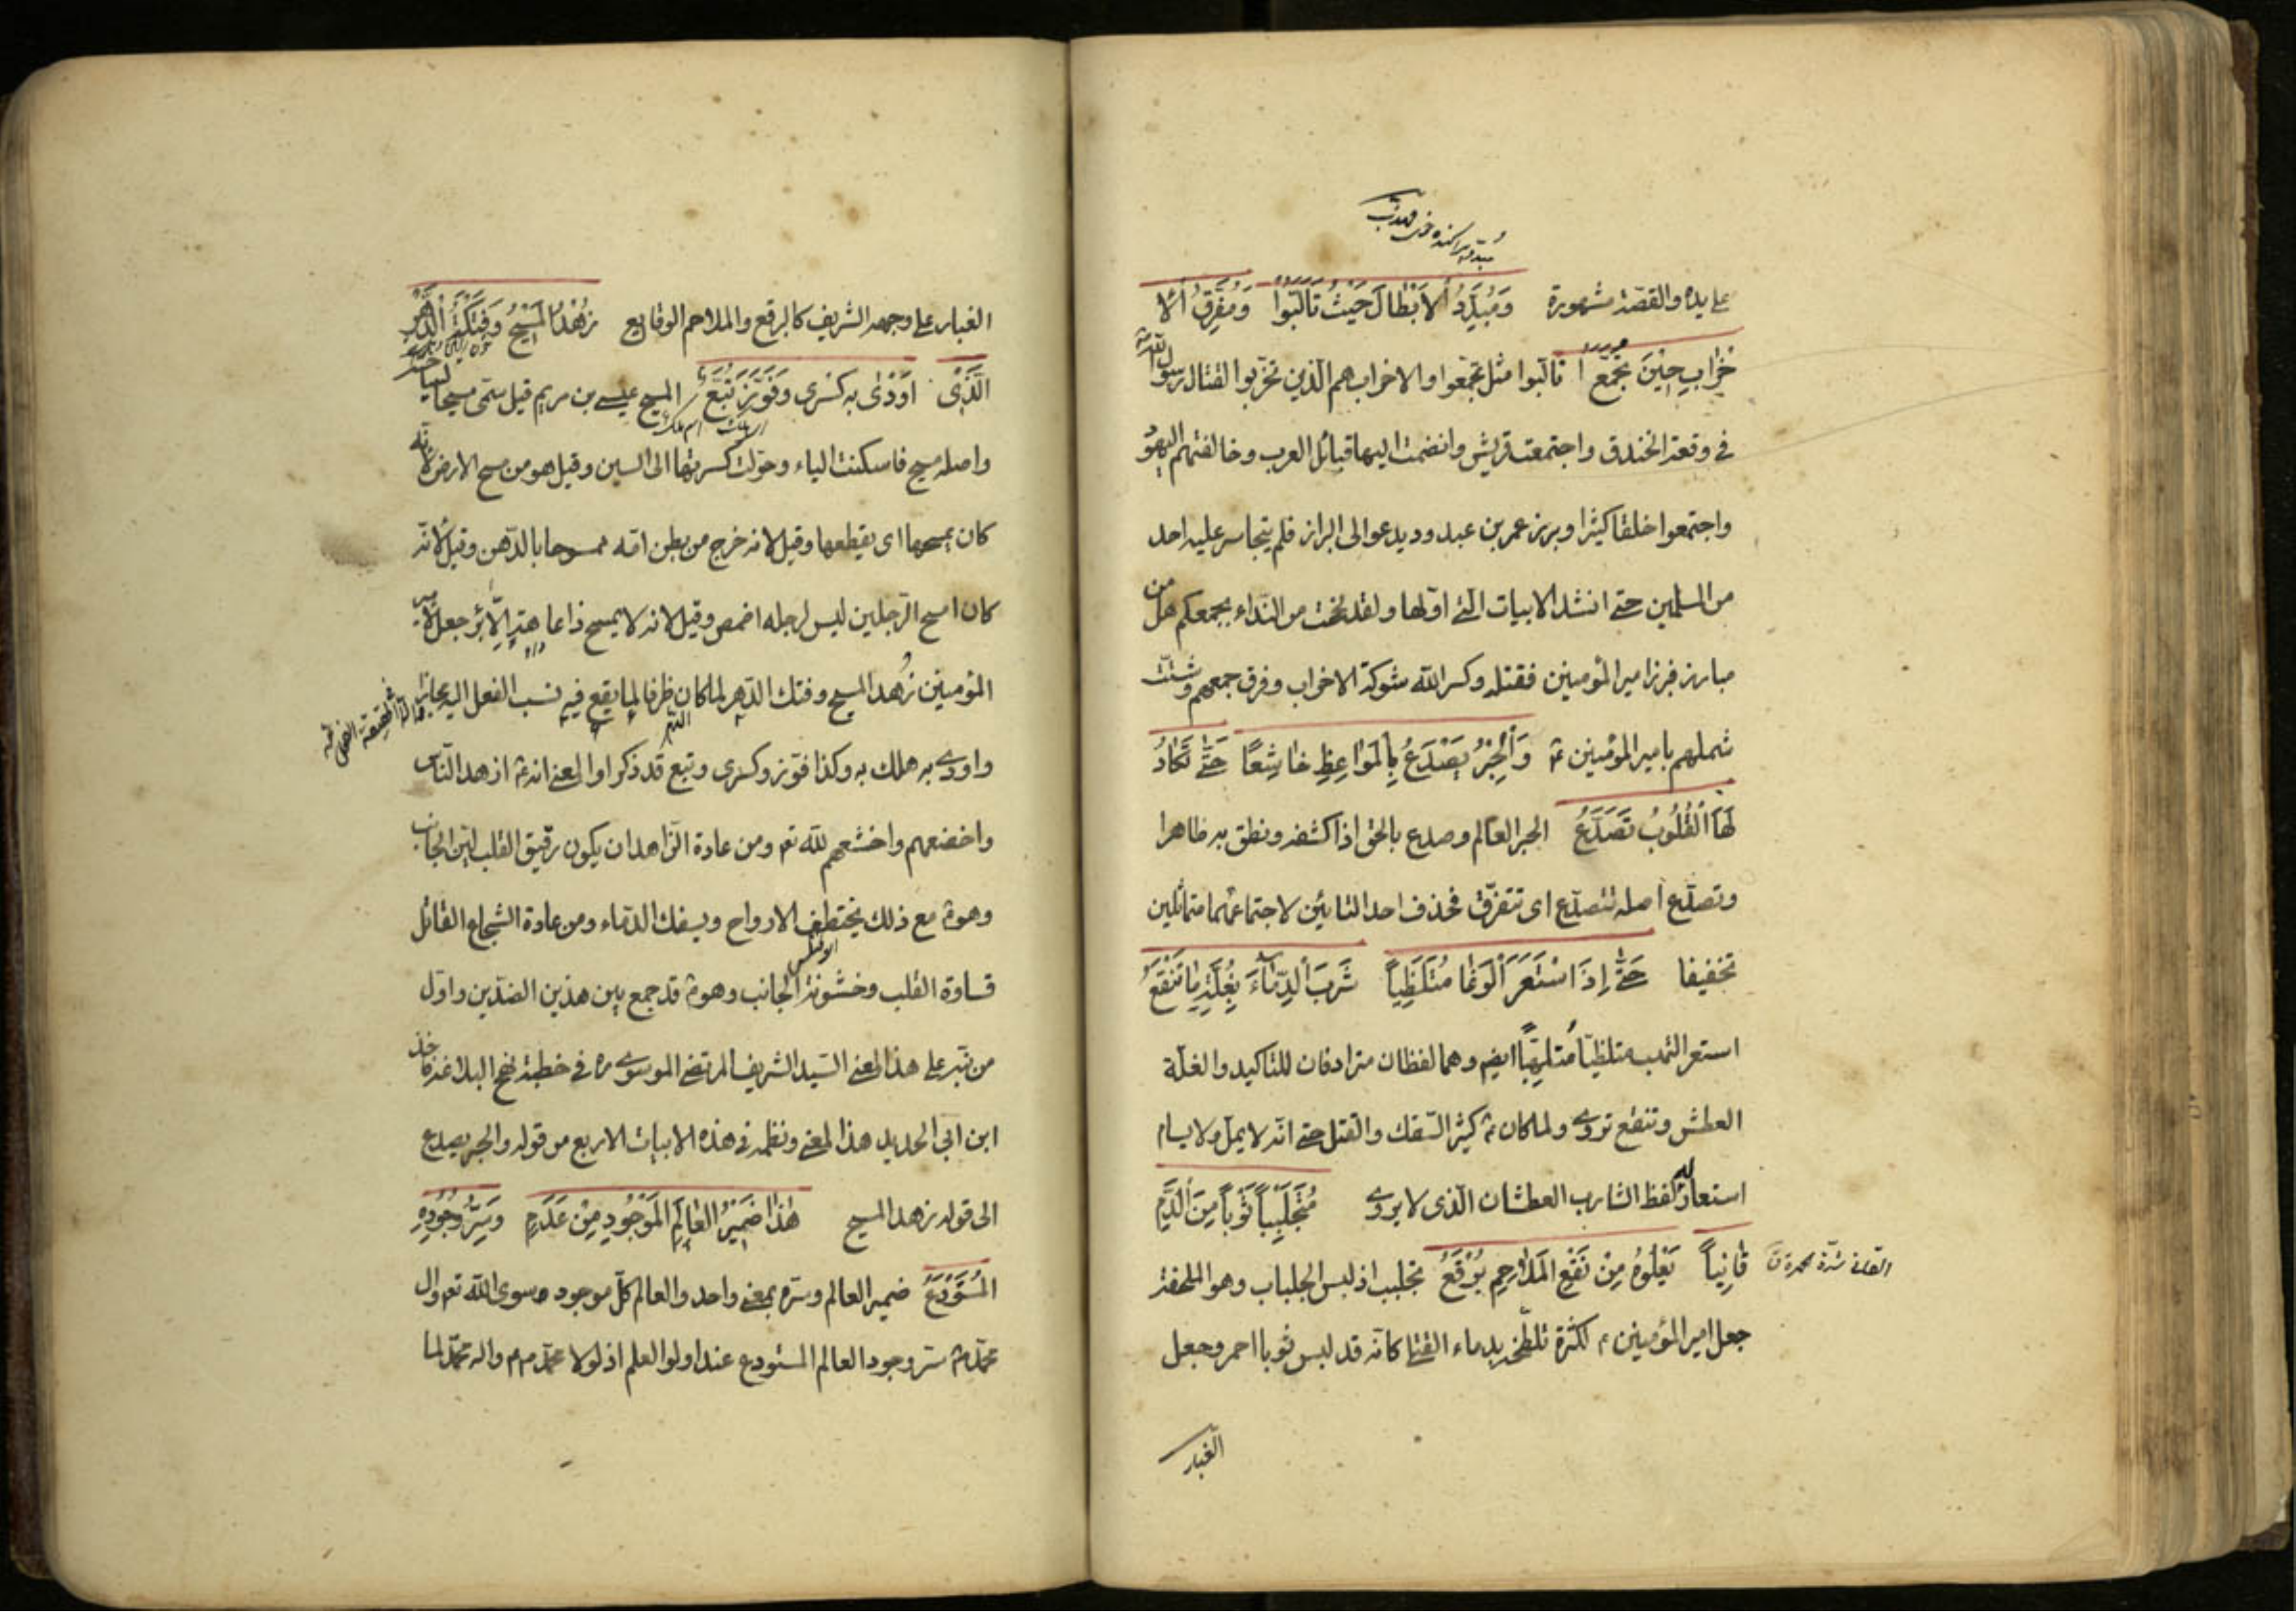 على يده والقصة مشهورة وَمُبَدِّدُ الاَبْطَالَ حَيْثُ تَأَلَّبُوا وَمُفَرِّقُ الْاَ
حْزابِ حِيْنَ تجَمَّعُوا تالبوا مثل تجمعوا والاحزاب هم الذين تحزبوا لقتال رسول الله
في وقعة الخندق واجتمعت قريش وانضمت اليها قبائل العرب وخالفتهم اليهود
واجتمعوا خلقا كثيرا وبرز عمر بن عبد ود يدعو الى البراز فلم يتجاسر عليه احد
من المسلمين حتى انشد الابيات التي اولها ولقد بححت من النداء بجمعكم هل من
مبارز فبرز امير المؤمنين فقتله وكسر الله شوكة الاحزاب وفرق جمعهم وشتت
شملهم بامير المؤمنين ع وَالْحِبْرُ يَصْدَعُ بِالْمَواعِظِ خاشِعًا حَتّٰى تَكادُ
لَهَا الْقُلُوبُ تَصَدَّعُ الحبر العالم وصدع بالحق اذا كشفه ونطق به ظاهرا
وتصدع اصله تتصدع اى تتفرق فحذف احد التائين لاجتماعهما متماثلين
تخفيفا حَتّٰى اِذَا اسْتَعَرَ الْوَغَا مُتَلَظِّياً شَرِبَ الدِّماءَ بِغُلَّةٍ ما تَنْقَعُ
استعر التهب متلظيا مُتلهباً ايضا وهما لفظان مترادفان للتاكيد والغلة
العطش وتنقع تروى ولما كان ع كثير السفك والقتل حتى انه لا يمل ولا يسام
استعار له لفظ الشارب العطشان الذى لا يروى مُتَجَلْبِباً ثَوْباً مِنَ الدَّمِ
قانِياً يَعْلُوهُ مِنْ نَقْعِ الْمَلاحِمِ بُرْقَعُ تجلبب اذ لبس الجلباب وهو الملحفة
جعل امير المؤمنين ع لكثرة تلطخه بدماء القتلى كانه قد لبس ثوبا احمر وجعل
الغبار
الغبار على وجهه الشريف كالبرقع والملاحم الوقايع زُهْدُ الْمَسْيحِ وَفَتْكَةُ الدَّهْرِ
الَّذى اَوْدٰى بِه كِسْرى وَفَوَّزَ تُبَّعُ المسيح عيسى بن مريم قيل سمى مسيحا
واصله مسيح فاسكنت الياء وحولت كسرتها الى السين وقيل هو من مسح الارض لانه
كان يمسحها اى يقطعها وقيل لانه خرج من بطن امه ممسوحا بالدهن وقيل لانه
كان امسح الرجلين ليس لرجله اخمص وقيل لانه لا يمسح ذا عاهة الا برء جعل لامير
المؤمنين زُهد المسيح وفتك الدهر لما كان ظرفا لما يقع فيه نسب الفعل اليه مجازا
واودى به هلك به وكذا فوز وكسرى وتبع قد ذكرا والمعنى انه ع ازهد الناس
واخضعهم واخشعهم لله تع ومن عادة الزاهد ان يكون رقيق القلب لين الجانب
وهو ع مع ذلك يختطف الارواح ويسفك الدماء ومن عادة الشجاع القاتل
قساوة القلب وخشونة الجانب وهو ع قد جمع بين هذين الضدين واول
من نبه على هذا المعنى السيد الشريف المرتضى الموسوى ره في خطبة نهج البلاغة فاخذ
ابن ابي الحديد هذا المعنى ونظمه في هذه الابيات الاربع من قوله والحبر يصدع
الى قوله زهد المسيح هٰذا ضَمِيْرُ الْعالَمِ الْمَوْجُودِ مِنْ عَدَمٍ وَسِرُّ وُجُودِهِ
الْمُسْتَوْدَعُ ضمير العالم وسره بمعنى واحد والعالم كل موجود سوى الله تع وال
محمد ع سر وجود العالم المستودع عند اولو العلم اذ لولا محمد ص م واله محمد لما